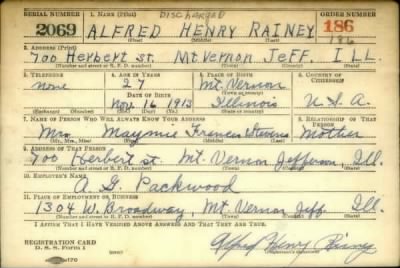 SERIAL NUMBER 1. NAME (Print) DISCHARGED ORDER NUMBER
2069 ALFRED HENRY RAINEY 186
186
2. ADDRESS (Print)
700 Herbert st. Mt. Vernon JeFF. ILL.
(Number and street or R. F. D. number) (Town) (County) (State)
3. TELEPHONE 4. AGE IN YEARS 5. PLACE OF BIRTH 6. COUNTRY OF CITIZENSHIP
none 27 Mt. Vernon
DATE OF BIRTH
Nov. 16 1913 Illinois U.S.A.
(Mo.) (Day) (Yr.) (State or country)
7. NAME OF PERSON WHO WILL ALWAYS KNOW YOUR ADDRESS 8. RELATIONSHIP OF THAT PERSON
Mrs. Maymie Frances Stevens Mother
(Mr., Mrs., Miss) (First) (Middle) (Last)
9. ADDRESS OF THAT PERSON
700 Herbert st. Mt. Vernon Jefferson, Ill.
(Number and street or R. F. D. number) (Town) (County) (State)
10. EMPLOYER'S NAME
A. G. Packwood
11. PLACE OF EMPLOYMENT OR BUSINESS
1304 W. Broadway, Mt. Vernon Jeff. Ill.
(Number and street or R. F. D. number) (Town) (County) (State)
I AFFIRM THAT I HAVE VERIFIED ABOVE ANSWERS AND THAT THEY ARE TRUE.
REGISTRATION CARD
D. S. S. Form 1
(over)
Alfred Henry Rainey
(Registrant's signature)